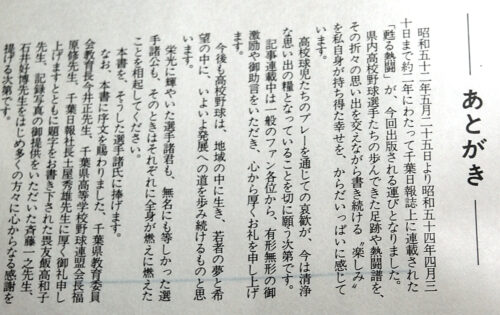 あとがき
昭和五十二年五月二十五日より昭和五十四年四月三
十日まで約二年にわたって千葉日報誌上に連載された
「甦る熱闘」が、今回出版される運びとなりました。
県内高校野球選手たちの歩んできた足跡や熱闘譜を、
その折々の思い出を交えながら書き続ける〝楽しみ〟
を私自身が持ち得た幸せを、からだいっぱいに感じて
います。
高校球児たちのプレーを通じての哀歓が、今は清浄
な思い出の糧となっていることを切に願う次第です。
記事連載中は一般のファン各位から、有形無形の御
激励や御助言をいただき、心から厚くお礼を申し上げ
ます。
今後も高校野球は、地域の中に生き、若者の夢と希
望の中に、いよいよ発展への道を歩み続けるものと思
います。
栄光に輝やいた選手諸君も、無名にも等しかった選
手諸公も、そのときはそれぞれに全身が燃えに燃えた
ことを想起してください。
本書を、そうした選手諸氏に捧げます。
なお、本書に序文を賜わりました、千葉県教育委員
会教育長今井正先生、千葉県高等学校野球連盟会長福
原修先生、千葉日報社長土屋秀雄先生に厚く御礼申し
上げますとともに題字をお書き下された畏友飯高和子
先生、記録写真の御提供をいただいた斉藤一之先生、
石井好博先生をはじめ多くの方々に心からなる感謝を
捧げる次第です。